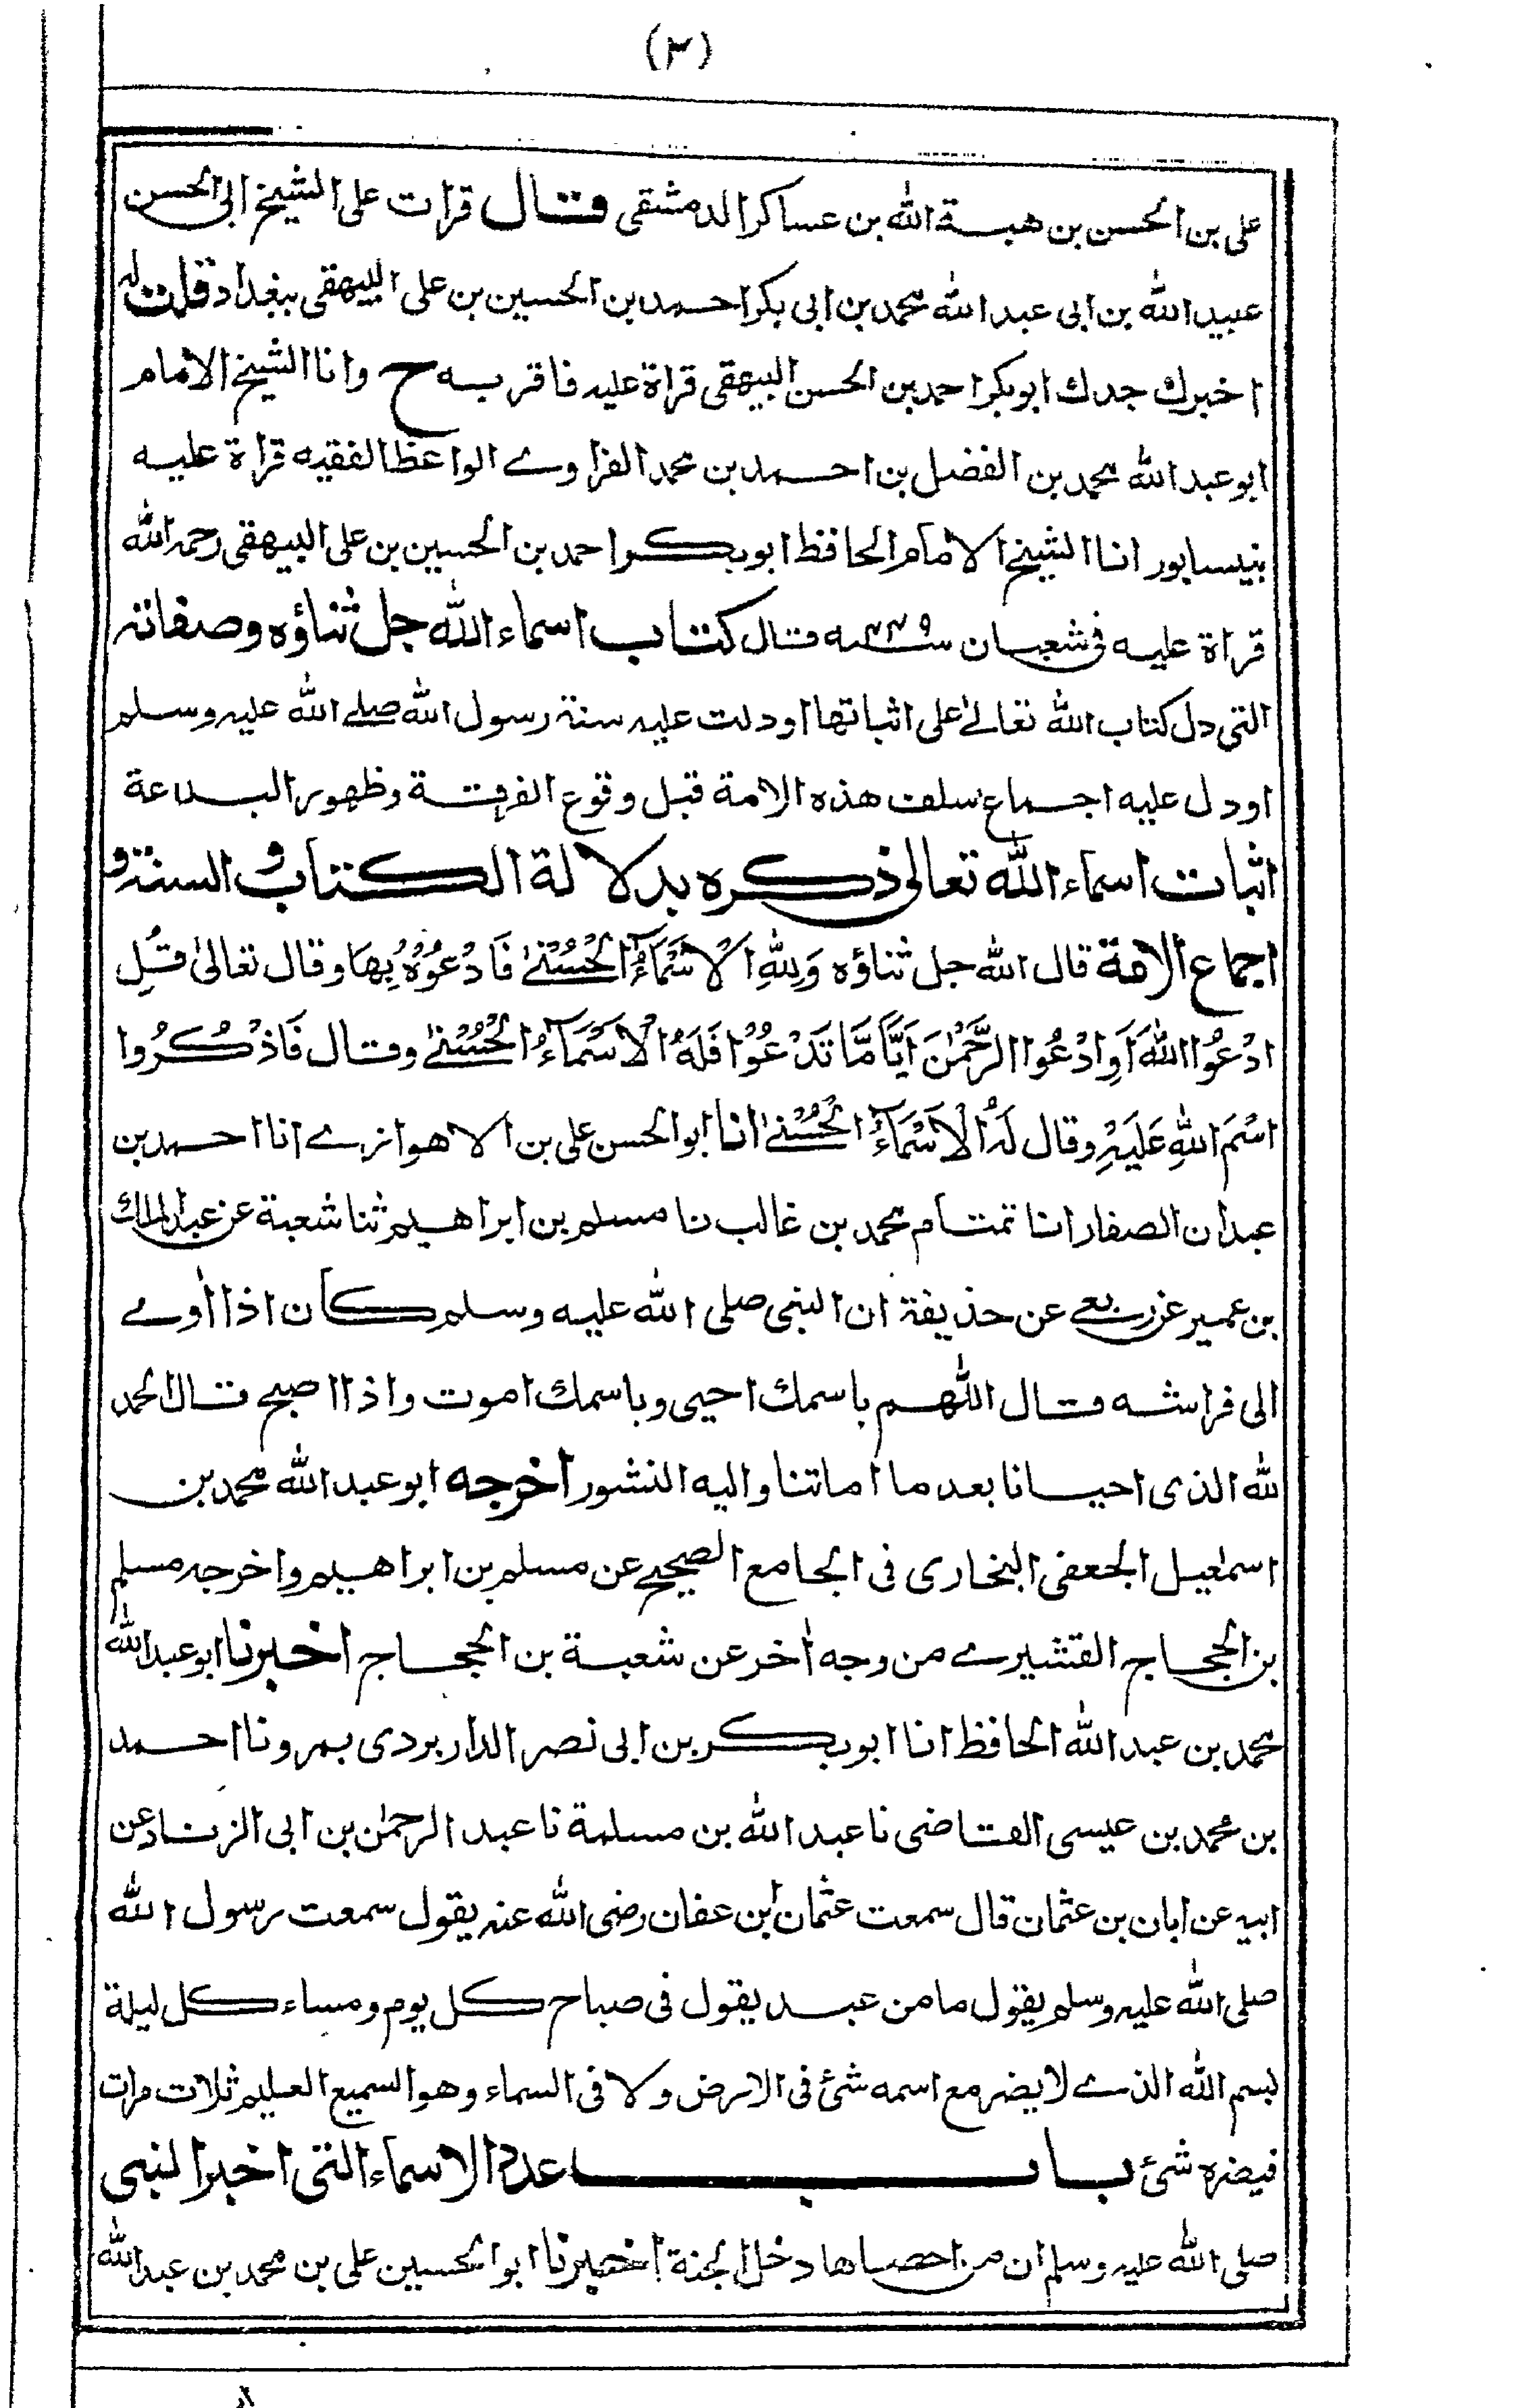 (٣)
على بن الحسن بن هبة الله بن عساكر الدمشقى قال قرات على الشيخ ابى الحسن
عبيد الله بن ابى عبد الله محمد بن ابى بكر احمد بن الحسين بن على البيهقى ببغداد قلت له
اخبرك جدك ابو بكر احمد بن الحسن البيهقى قراة عليه فاقر به ح وانا الشيخ الامام
ابو عبد الله محمد بن الفضل بن احمد بن محمد الفراوے الواعظ الفقيه قراة عليه
بنيسابور انا الشيخ الامام الحافظ ابو بكر احمد بن الحسين بن على البيهقى رحمه الله
قراة عليه فى شعبان سنه ٤٤٩ قال كتاب اسماء الله جل ثناؤه وصفاته
التى دل كتاب الله تعالىٰ على اثباتها او دلت عليه سنة رسول الله صلے الله عليه وسلم
او دل عليه اجماع سلف هذه الامة قبل وقوع الفرقة وظهور البدعة
اثبات اسماء الله تعالى ذكره بدلالة الكتاب و السنة و
اجماع الامة قال الله جل ثناؤه وَلِلّٰهِ الْاَسْمَآءُ الْحُسْنٰے فَادْعُوْهُ بِهَا وقال تعالىٰ قُلِ
ادْعُوا اللهَ اَوِ ادْعُوا الرَّحْمٰنَ اَيًّا مَّا تَدْعُوْا فَلَهُ الْاَسْمَآءُ الْحُسْنٰے وقال فَاذْكُرُوا
اسْمَ اللهِ عَلَيْهِ وقال لَهُ الْاَسْمَآءُ الْحُسْنٰے انا ابو الحسن على بن الاهوازے انا احمد بن
عبدان الصفار انا تمتام محمد بن غالب نا مسلم بن ابراهيم ثنا شعبة عن عبد الملك
بن عمير عن ربعے عن حذيفة ان النبى صلى الله عليه وسلم كان اذا اٰوے
الى فراشه قال اللهم باسمك احيى وباسمك اموت واذا اصبح قال الحمد
لله الذى احيانا بعد ما اماتنا واليه النشور اخرجه ابو عبد الله محمد بن
اسمٰعيل الجعفى البخارى فى الجامع الصحيح عن مسلم بن ابراهيم واخرجه مسلم
بن الحجاج القشيرے من وجه اٰخر عن شعبة بن الحجاج اخبرنا ابو عبد الله
محمد بن عبد الله الحافظ انا ابو بكر بن ابى نصر الداربردى بمرو نا احمد
بن محمد بن عيسى القاضى نا عبد الله بن مسلمة نا عبد الرحمٰن بن ابى الزناد عن
ابيه عن ابان بن عثمان قال سمعت عثمان ابن عفان رضى الله عنه يقول سمعت رسول الله
صلى الله عليه وسلم يقول ما من عبد يقول فى صباح كل يوم ومساء كل ليلة
بسم الله الذے لا يضر مع اسمه شئ فى الارض ولا فى السماء وهو السميع العليم ثلات مرات
فيضره شئ باب عدد الاسماء التى اخبر النبى
صلى الله عليه وسلم ان من احصاها دخل الجنة اخبرنا ابو الحسين على بن محمد بن عبد الله